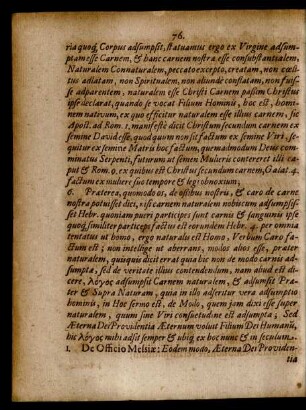 76.
ria quoq; Corpus adsumpsit, statuamus ergo ex Virgine adsum-
ptam esse Carnem, & hanc carnem nostræ esse consubstantialem,
Naturalem Connaturalem, peccato excepto, creatam, non cœli-
tus adlatam, non Spiritualem, non aliunde constatam, non fuis-
se adparentem, naturalem esse Christi Carnem passim Christus
ipse declarat, quando se vocat Filium Hominis, hoc est, homi-
nem nativum, ex quo efficitur naturalem esse illius carnem, sic
Apost. ad Rom. 1. manifestè dicit Christum secundum carnem ex
semine David esse, quod quum non sit factum ex semine Viri, se-
quitur ex semine Matris hoc factum, quemadmodum Deus com-
minatus Serpenti, futurum ut semen Mulieris contereret illi ca-
put & Rom. 9. ex quibus est Christus secundum carnem, Galat. 4.
factum ex muliere suo tempore & legi obnoxium,
6. Præterea, quomodo os, de ossibus nostris, & caro de carne
nostra potuisset dici, nisi carnem naturalem nobiscum adsumpsis-
set Hebr. quoniam pueri participes sunt carnis & sanguinis ipse
quoq; similiter particeps factus est eorundem Hebr. 4. per omnia
tentatus ut homo, ergo naturalis est Homo, Verbum Caro fa-
ctum est; non intellige ut aberrans, modos alios esse, præter
naturalem, quisquis dicit errat quia hic non de modo carnis ad-
sumptæ, sed de veritate illius contendendum, nam abud est di-
cere, λογος adsumpsit Carnem naturalem, & adsumpsit Præ-
ter & Supra Naturam, quia in illo adseritur vera adsumptio
hominis, in Hoc sermo est, de Modo, quem jam dixi esse super
naturalem, quum sine Viri consuetudine est adsumpta; Sed
Æterna Dei Providentia Æternum voluit Filium Dei Humanū,
hic λογος nubi adsit semper & ubiq; ex hoc nunc & in seculum.
1. De Officio Messiæ; Eodem modo, Æterna Dei Providen-
tia